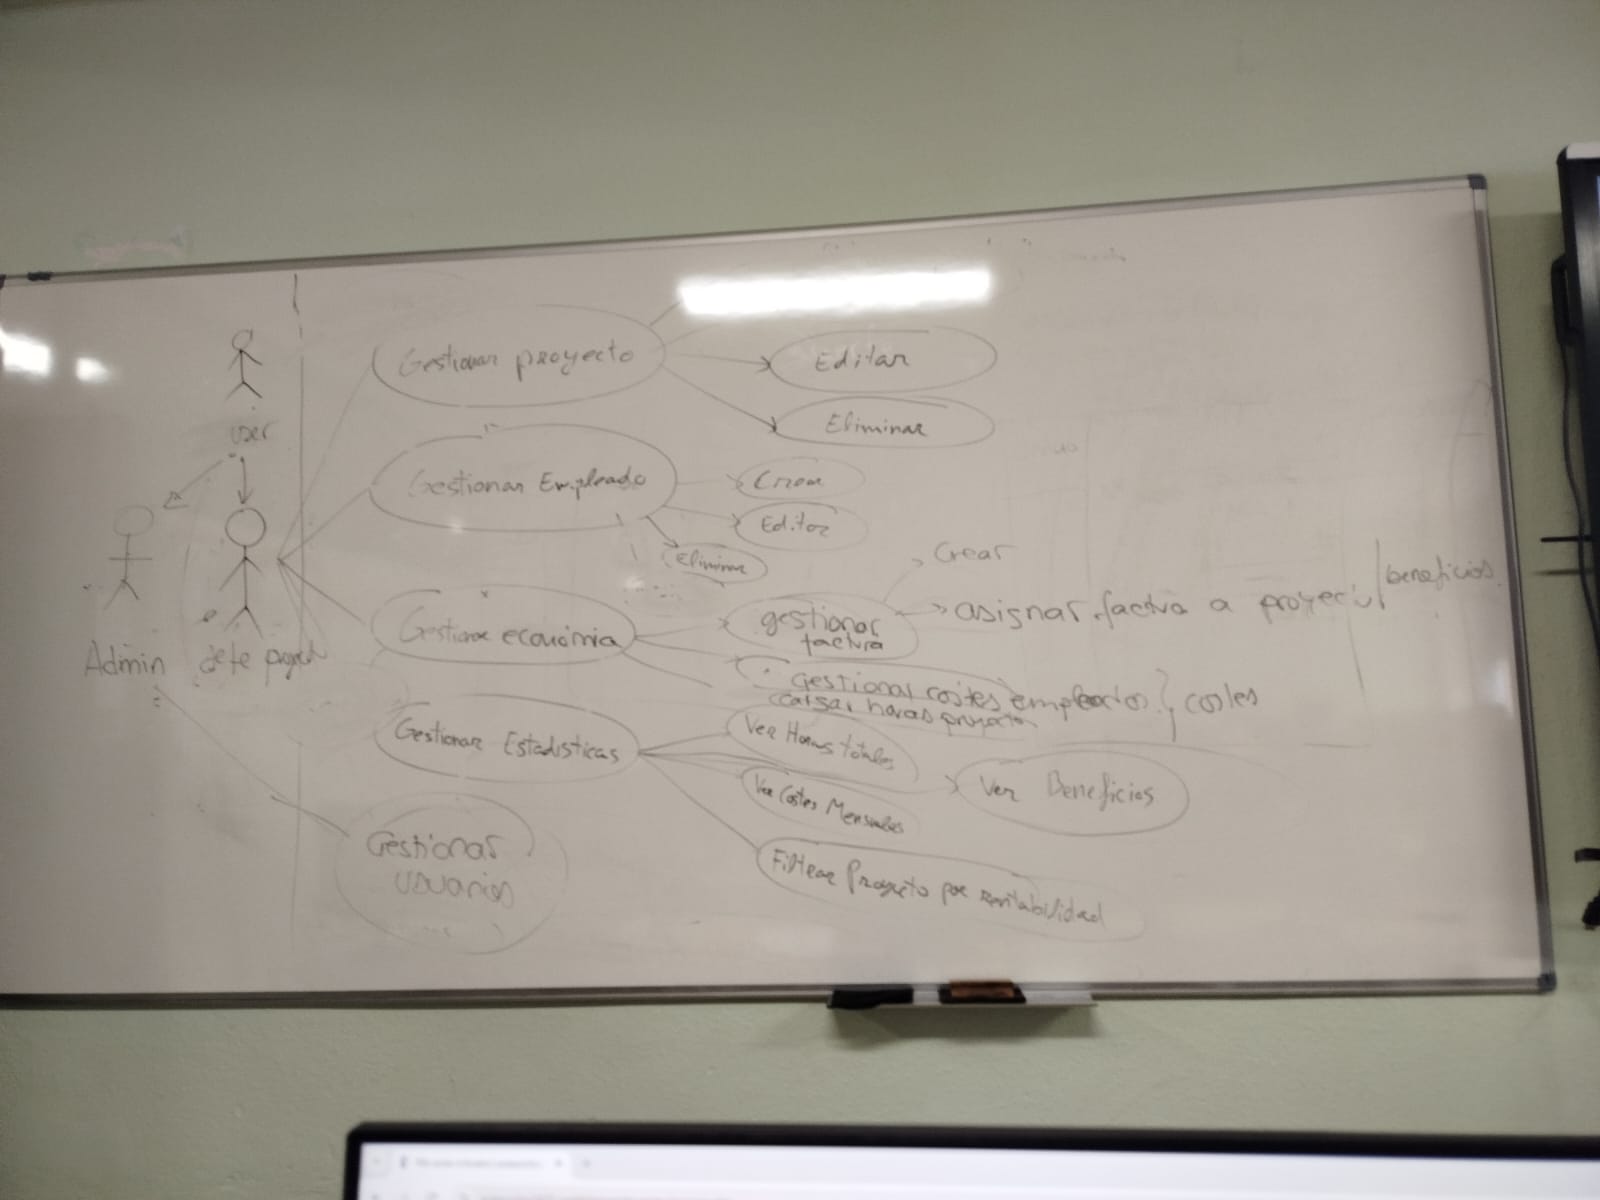 Gestionar proyecto
Editar
Eliminar
user
Gestionar Empleado
Crear
Editar
Eliminar
Admin
Gestionar económia
gestionar
factura
Crear
asignar factura a
beneficios
gestionar costes empleados
cargar horas proyecto
costes
Gestionar Estadisticas
Ver Horas totales
Ver Costes Mensuales
Ver Beneficios
Filtrar Proyecto por rentabilidad
Gestionar
usuarios